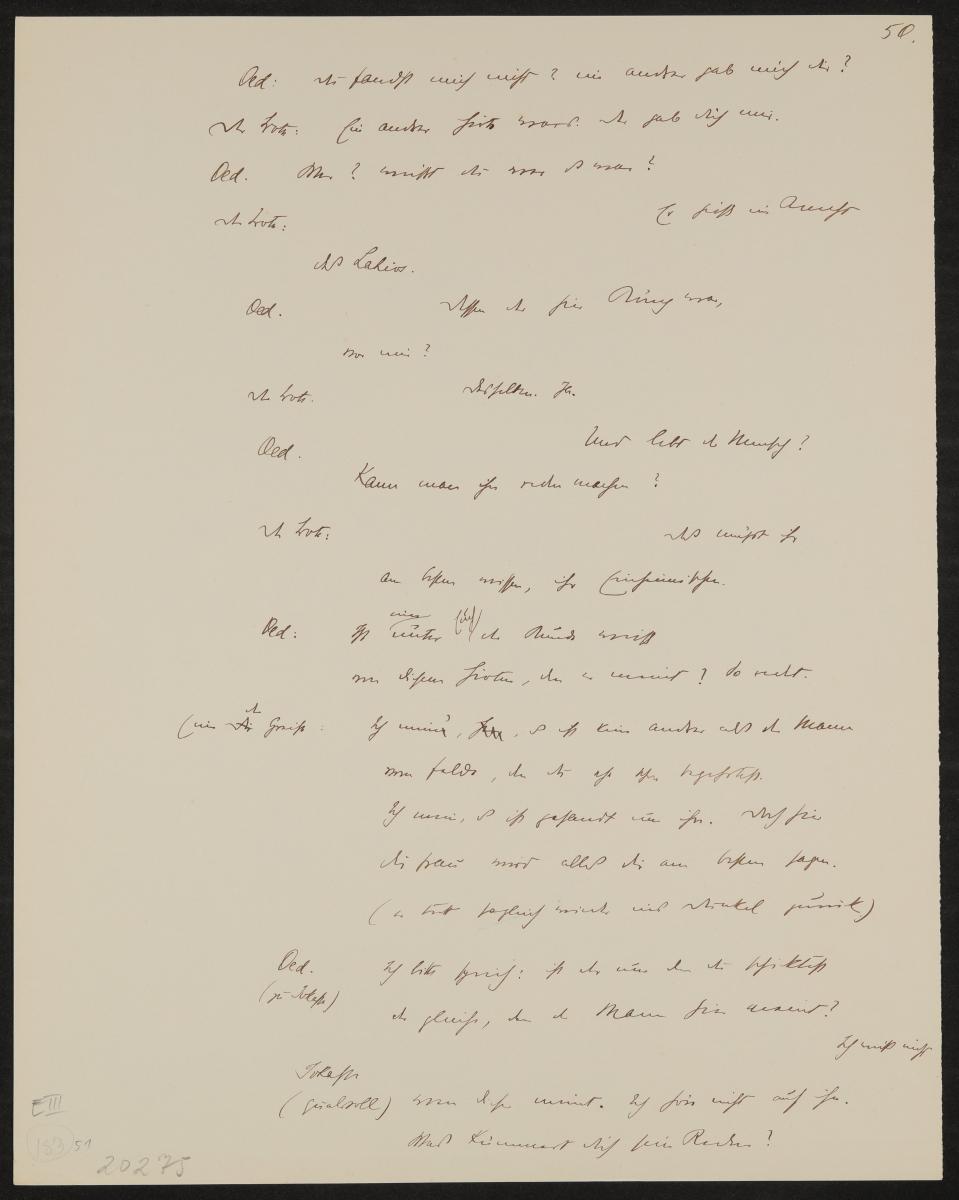 50.
Oed: du fandst mich nicht? ein andrer gab mich dir?
der Bote: Ein andrer Hirte wars. der gab dich mir.
Oed. Wer? weisst du wer es war?
der Bote: Er hiess ein Knecht
des Laïos.
Oed. dessen der hier König war,
vor mir?
der Bote. desselben. Ja.
Oed. Und lebt der Mensch?
Kann man ihn reden machen?
der Bote: das müsst ihr
am besten wissen, ihr Einheimischen.
Oed: Ist einer unter Euch der Kunde weiss
von diesem Hirten, den er meint? So redet.
(ein der Greise: Ich mein, es ist kein andrer als der Mann
vom Felde, den du
Ich mein, es ist gesandt um ihn. Doch hier
die Frau wird alles dir am besten sagen.
(er tritt sogleich wieder ins Dunkel zurück)
Oed. Ich bitte sprich: ist der um den du schicktest
(zu Jokaste) der gleiche, den der Mann hier meint?
Jokaste Ich weiss nicht
(qualvoll) wen dieser meint. Ich hör nicht auf ihn.
Was kümmert dich sein Reden?
E III
183 51
20275